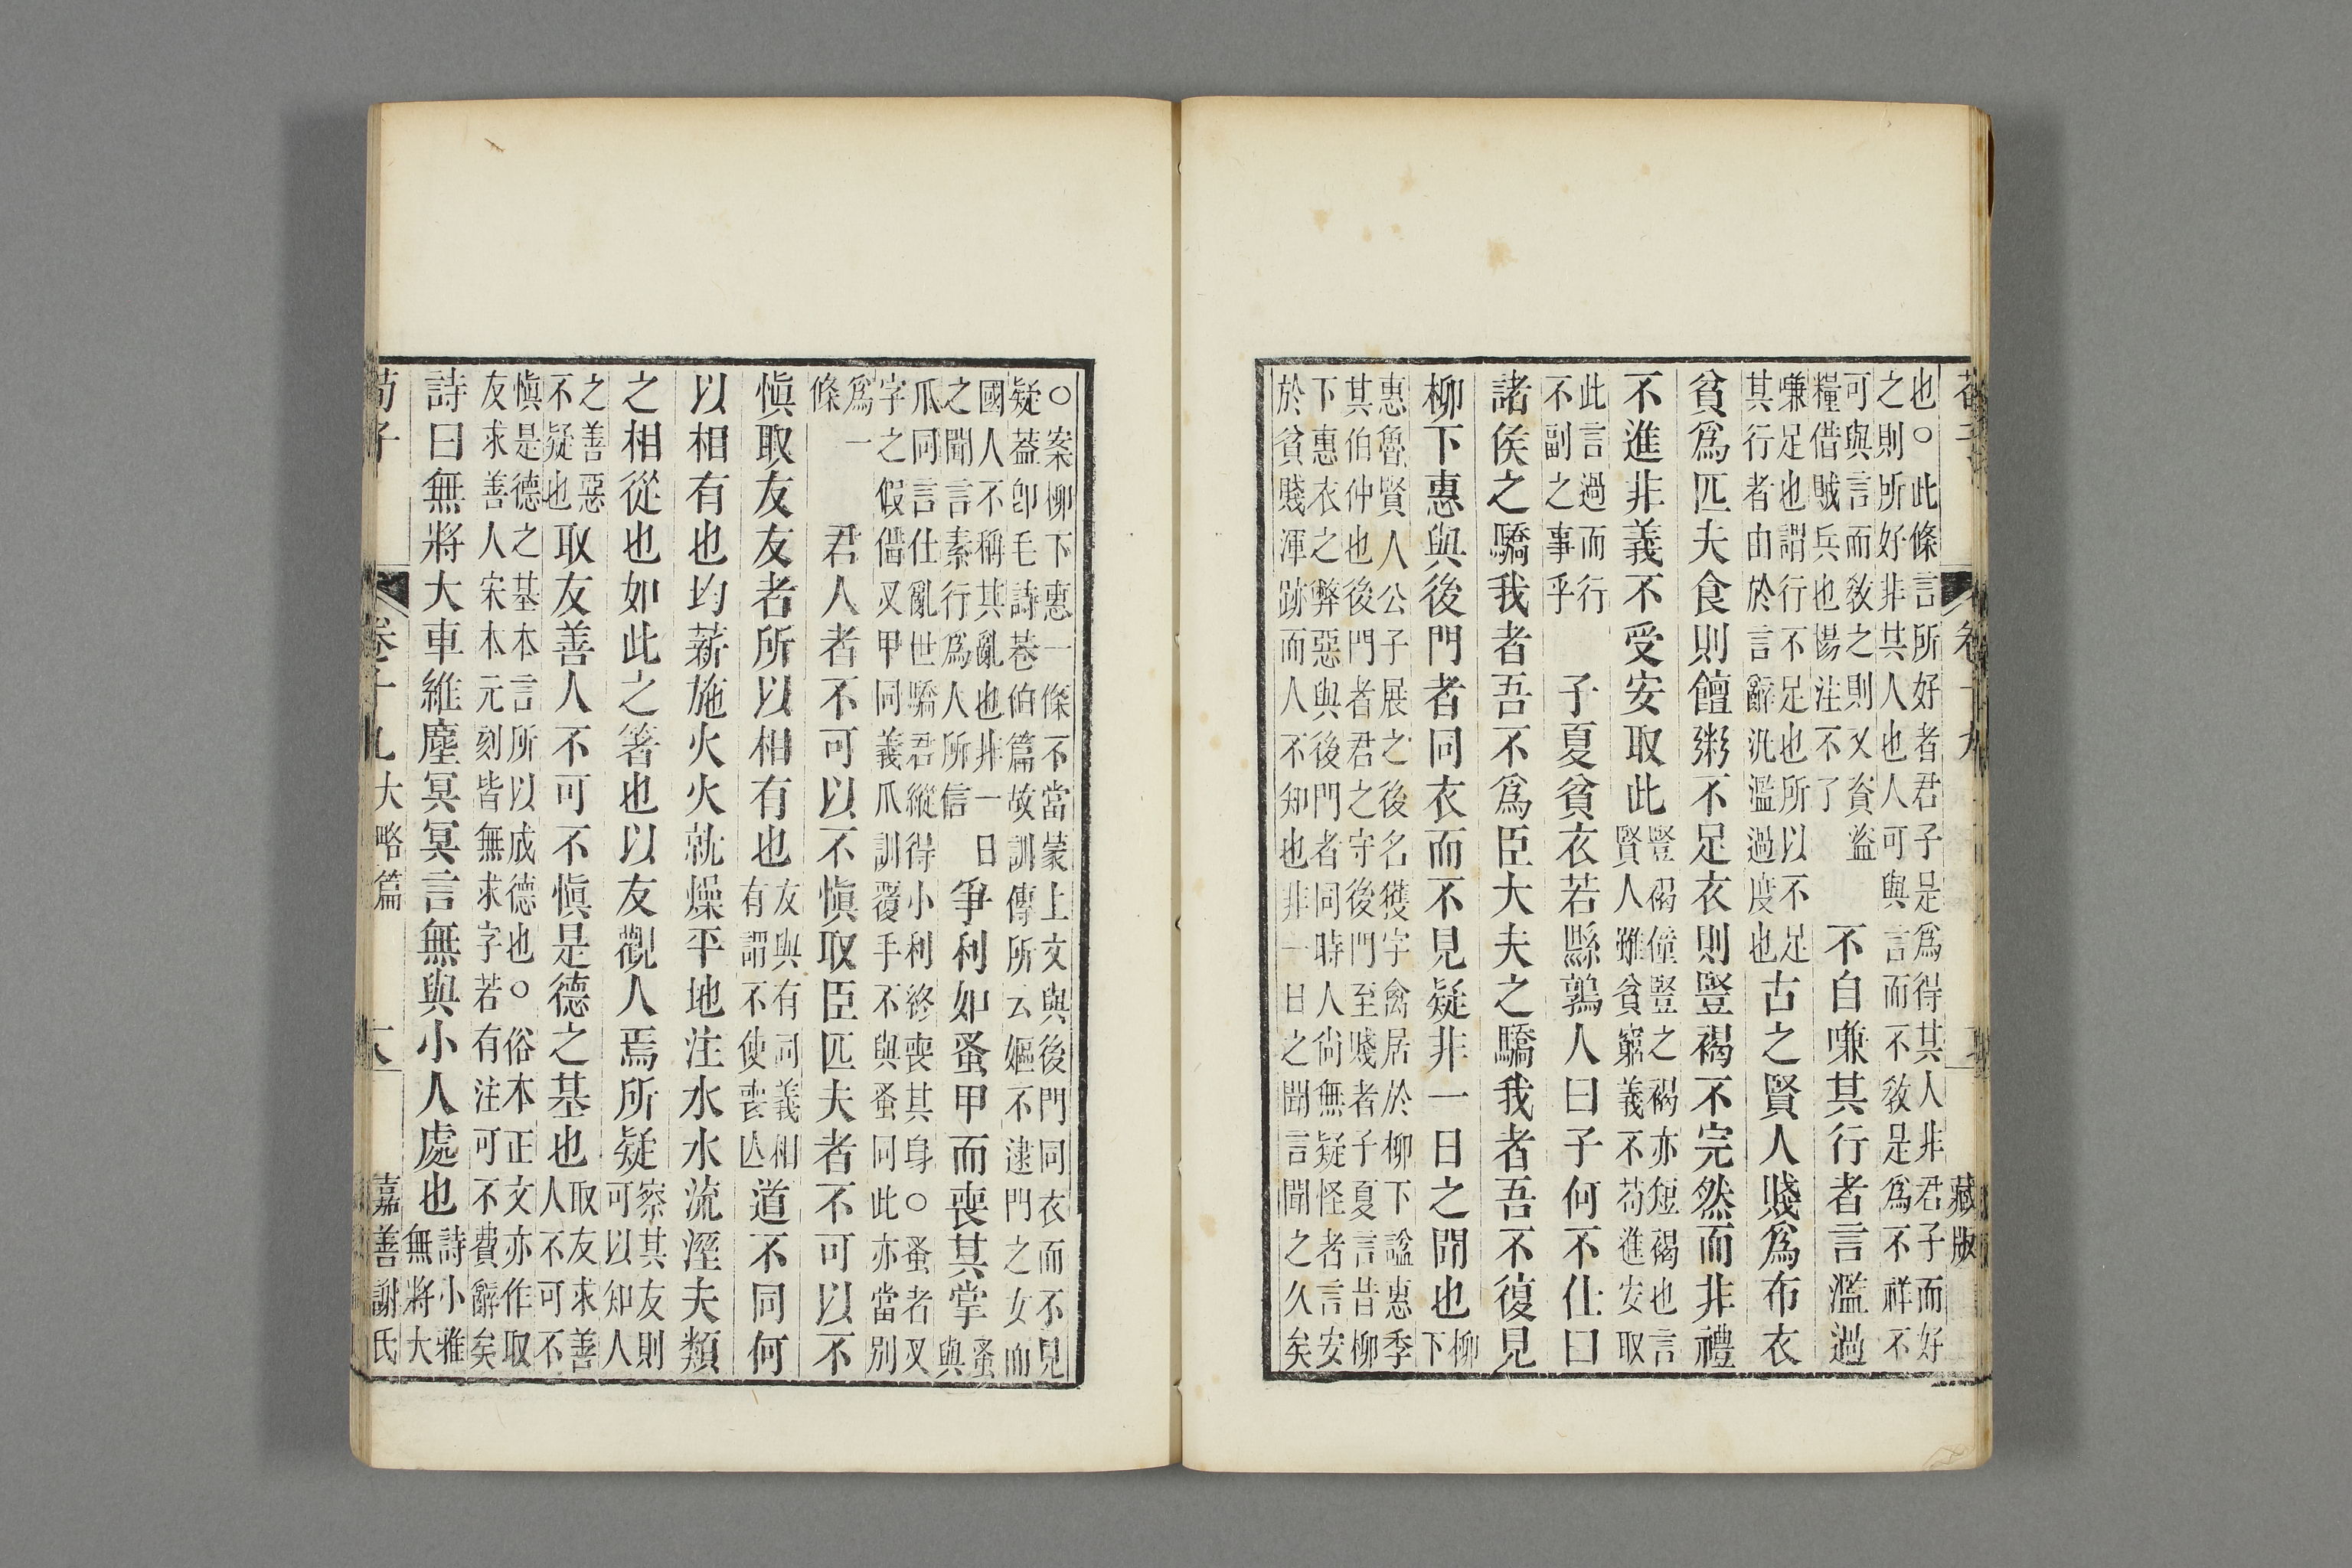 也○此條言所好者君子是爲得其人非君子而好
之則所好非其人也人可與言而不敎是爲不祥不
可與言而敎之則又賫盜
糧借賊兵也楊注不了
不自嗛其行者言濫過
嗛足也謂行不足也所以不足
其行者由於言辭汎濫過度也
古之賢人賤爲布衣
貧爲匹夫食則饘粥不足衣則豎褐不完然而非禮
不進非義不受安取此
豎褐僮豎之褐亦短褐也言
賢人雖貧窮義不苟進安取
此言過而行
不副之事乎
子夏貧衣若縣鶉人曰子何不仕曰
諸侯之驕我者吾不爲臣大夫之驕我者吾不復見
柳下惠與後門者同衣而不見疑非一日之聞也
柳
下
惠魯賢人公子展之後名獲字禽居於柳下諡惠季
其伯仲也後門者君之守後門至賤者子夏言昔柳
下惠衣之弊惡與後門者同時人尙無疑怪者言安
於貧賤渾跡而人不知也非一日之聞言聞之久矣
藏版
○案柳下惠一條不當蒙上文與後門同衣而不見
疑葢卽毛詩巷伯篇故訓傳所云嫗不逮門之女而
國人不稱其亂也非一日
之聞言素行爲人所信
爭利如蚤甲而喪其掌
蚤
與
爪同言仕亂世驕君縱得小利終喪其身○蚤者叉
字之假借叉甲同義爪訓覆手不與蚤同此亦當別
爲一
條
君人者不可以不愼取臣匹夫者不可以不
愼取友友者所以相有也
友與有同義相
有謂不使喪亾
道不同何
以相有也均薪施火火就燥平地注水水流溼夫類
之相從也如此之箸也以友觀人焉所疑
察其友則
可以知人
之善惡
不疑也
取友善人不可不愼是德之基也
取友求善
人不可不
愼是德之基本言所以成德也○俗本正文亦作取
友求善人宋本元刻皆無求字若有注可不費辭矣
詩曰無將大車維塵冥冥言無與小人處也
詩小雅
無將大
荀子
卷十九
大略篇
嘉善謝氏